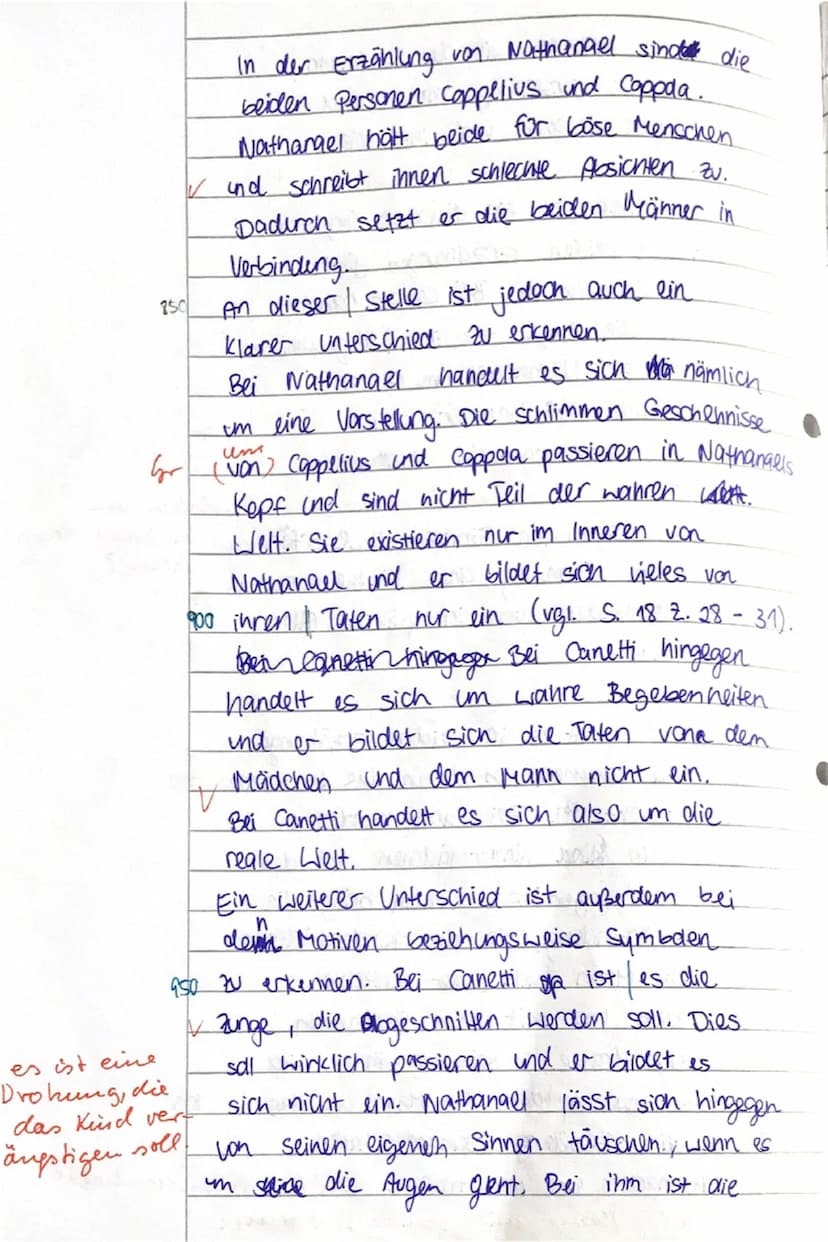 In der Erzählung von Nathanael sind die
beiden Personen Coppelius und Coppola.
Nathanael hält beide für böse Menschen
✓ und schreibt ihnen schlechte Absichten zu.
Dadurch setzt er die beiden Männer in
Verbindung.
850 An dieser | Stelle ist jedoch auch ein
klarer Unterschied zu erkennen.
Bei Nathanael handelt es sich nämlich
um eine Vorstellung. Die schlimmen Geschehnisse
um
Gr (von) Coppelius und Coppola passieren in Nathanaels
Kopf und sind nicht Teil der wahren
Welt. Sie existieren nur im Inneren von
Nathanael und er bildet sich vieles von
900 ihren | Taten nur ein (vgl. S. 18 Z. 28 - 31).
Bei Canetti hingegen Bei Canetti hingegen
handelt es sich um wahre Begebenheiten
und er bildet sich die Taten von dem
Mädchen und dem Mann nicht ein.
✓ Bei Canetti handelt es sich also um die
reale Welt.
Ein weiterer Unterschied ist außerdem bei
den Motiven beziehungsweise Symbolen
950 zu erkennen. Bei Canetti ist | es die
✓ Zunge, die abgeschnitten werden soll. Dies
soll wirklich passieren und er bildet es
sich nicht ein. Nathanael lässt sich hingegen
von seinen eigenen Sinnen täuschen, wenn es
um die Augen geht. Bei ihm ist die
es ist eine
Drohung, die
das Kind ver-
ängstigen soll